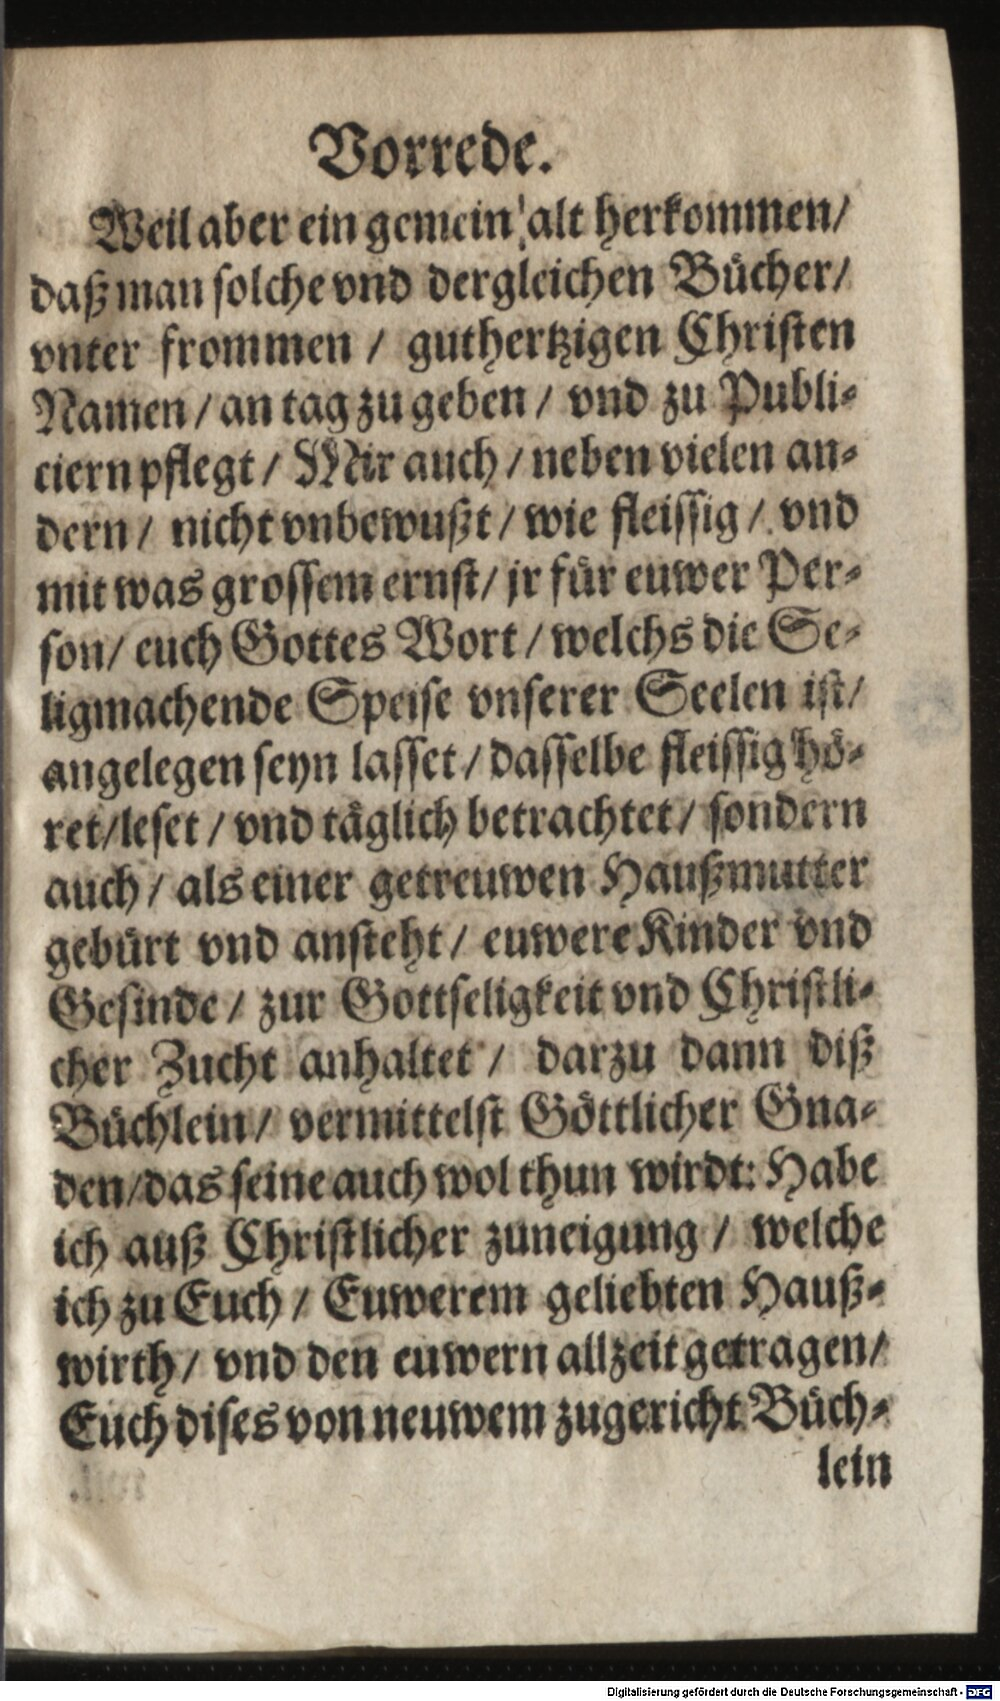 Vorrede.
Weil aber ein gemein alt herkommen/
daß man solche vnd dergleichen Bücher/
vnter frommen / guthertzigen Christen
Namen / an tag zu geben / vnd zu Publi-
ciern pflegt / Mir auch / neben vielen an-
dern / nicht vnbewußt / wie fleissig / vnd
mit was grossem ernst / jr für euwer Per-
son / euch Gottes Wort / welchs die Se-
ligmachende Speise vnserer Seelen ist /
angelegen seyn lasset / dasselbe fleissig hö-
ret / leset / vnd täglich betrachtet / sondern
auch / als einer getreuwen Haußmutter
gebürt vnd ansteht / euwere Kinder vnd
Gesinde / zur Gottseligkeit vnd Christli-
cher Zucht anhaltet / darzu dann diß
Büchlein / vermittelst Göttlicher Gna-
den / das seine auch wol thun wirdt: Habe
ich auß Christlicher zuneigung / welche
ich zu Euch / Euwerem geliebten Hauß-
wirth / vnd den euwern allzeit getragen /
Euch dises von neuwem zugericht Büch-
lein
Digitalisierung gefördert durch die Deutsche Forschungsgemeinschaft - DFG